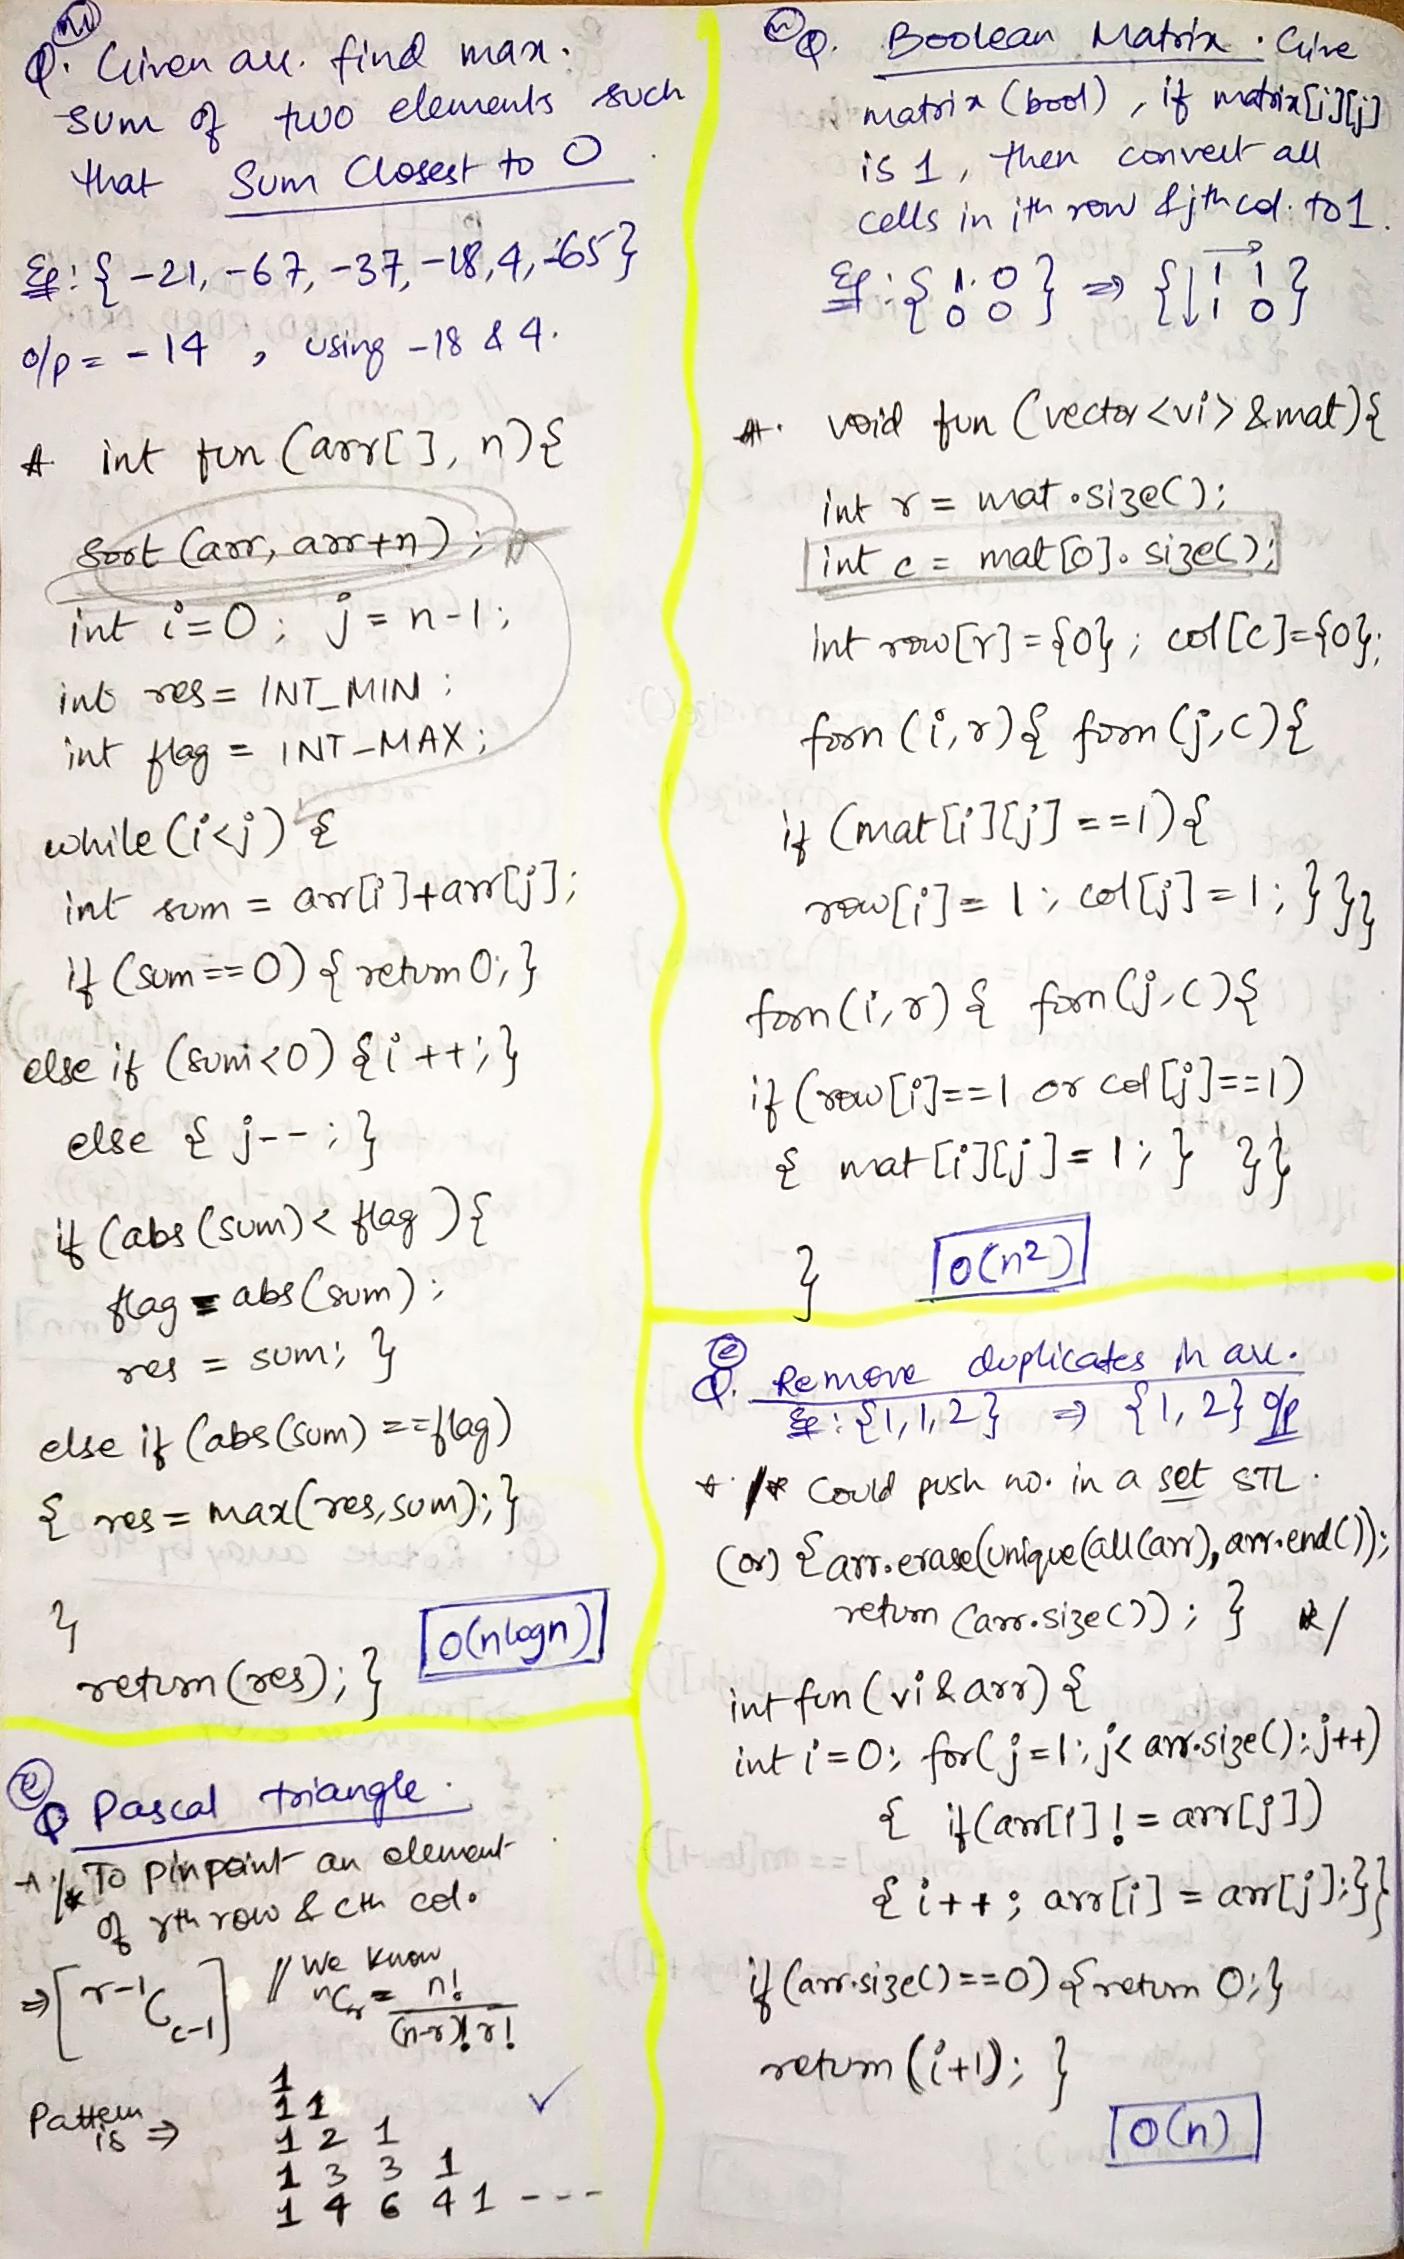 m
Q. Given arr. find max.
sum of two elements such
that Sum Closest to 0.
Eg: { -21, -67, -37, -18, 4, -65 }
o/p = -14 , using -18 & 4.
A int fun (arr[ ], n) {
sort (arr, arr+n);
int i=0; j=n-1;
int res = INT_MIN;
int flag = INT_MAX;
while (i<j) {
int sum = arr[i]+arr[j];
if (sum==0) { return 0; }
else if (sum<0) { i++; }
else { j--; }
if (abs(sum) < flag ) {
flag = abs(sum);
res = sum; }
else if (abs(sum) == flag)
{ res = max(res, sum); }
}
return (res); }
O(nlogn)
e
Q Pascal triangle.
A. /* To pinpoint an element
of rth row & cth col.
⇒ [ r-1Cc-1 ] // We know
nCr = n! / (n-r)! r!
Pattern is ⇒
1
1 1
1 2 1
1 3 3 1
1 4 6 4 1 ---
m
Q. Boolean Matrix. Give
matrix (bool), if matrix[i][j]
is 1, then convert all
cells in ith row & jth col. to 1.
Eg: { 1 0 } ⇒ { 1 1 }
{ 0 0 } { 1 0 }
A. void fun (vector<vi> &mat) {
int r = mat.size();
int c = mat[0].size();
int row[r] = {0}; col[c] = {0};
forn (i,r) { forn (j,c) {
if (mat[i][j] ==1) {
row[i] = 1; col[j] = 1; } } }
forn (i,r) { forn (j,c) {
if (row[i]==1 or col[j]==1)
{ mat[i][j] = 1; } } }
}
O(n²)
e
Q. Remove duplicates in arr.
Eg: {1,1,2} ⇒ {1,2} o/p
A. /* Could push no. in a set STL.
(or) { arr.erase(unique(all(arr), arr.end());
return (arr.size()); } */
int fun (vi & arr) {
int i=0; for( j=1; j< arr.size(); j++)
{ if(arr[i] != arr[j])
{ i++; arr[i] = arr[j]; } }
if (arr.size()==0) { return 0; }
return (i+1); }
O(n)